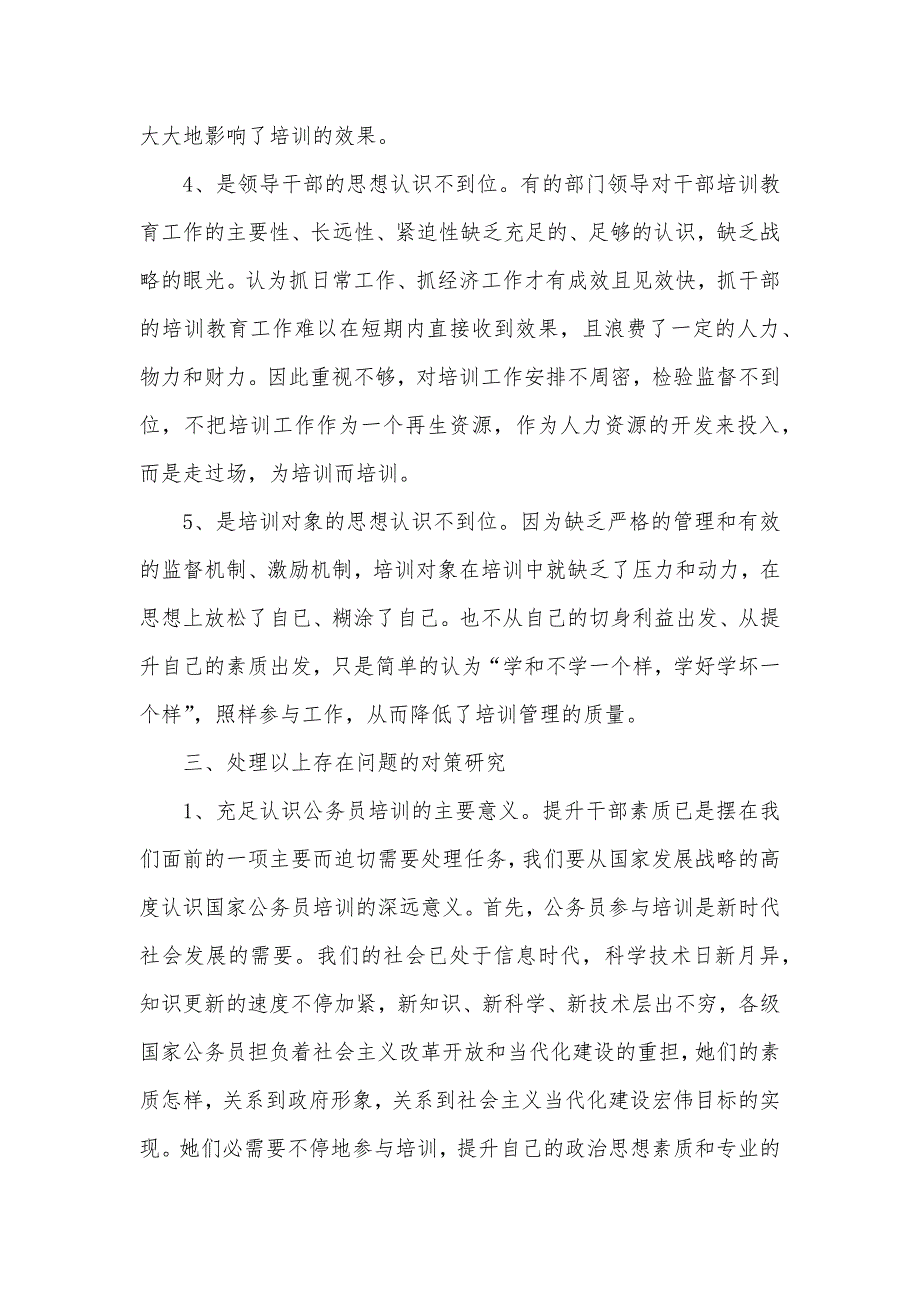 大大地影响了培训的效果。
4、是领导干部的思想认识不到位。有的部门领导对干部培训教
育工作的主要性、长远性、紧迫性缺乏充足的、足够的认识，缺乏战
略的眼光。认为抓日常工作、抓经济工作才有成效且见效快，抓干部
的培训教育工作难以在短期内直接收到效果，且浪费了一定的人力、
物力和财力。因此重视不够，对培训工作安排不周密，检验监督不到
位，不把培训工作作为一个再生资源，作为人力资源的开发来投入，
而是走过场，为培训而培训。
5、是培训对象的思想认识不到位。因为缺乏严格的管理和有效
的监督机制、激励机制，培训对象在培训中就缺乏了压力和动力，在
思想上放松了自己、糊涂了自己。也不从自己的切身利益出发、从提
升自己的素质出发，只是简单的认为“学和不学一个样，学好学坏一
个样”，照样参与工作，从而降低了培训管理的质量。
三、处理以上存在问题的对策研究
1、充足认识公务员培训的主要意义。提升干部素质已是摆在我
们面前的一项主要而迫切需要处理任务，我们要从国家发展战略的高
度认识国家公务员培训的深远意义。首先，公务员参与培训是新时代
社会发展的需要。我们的社会已处于信息时代，科学技术日新月异，
知识更新的速度不停加紧，新知识、新科学、新技术层出不穷，各级
国家公务员担负着社会主义改革开放和当代化建设的重担，她们的素
质怎样，关系到政府形象，关系到社会主义当代化建设宏伟目标的实
现。她们必需要不停地参与培训，提升自己的政治思想素质和专业的